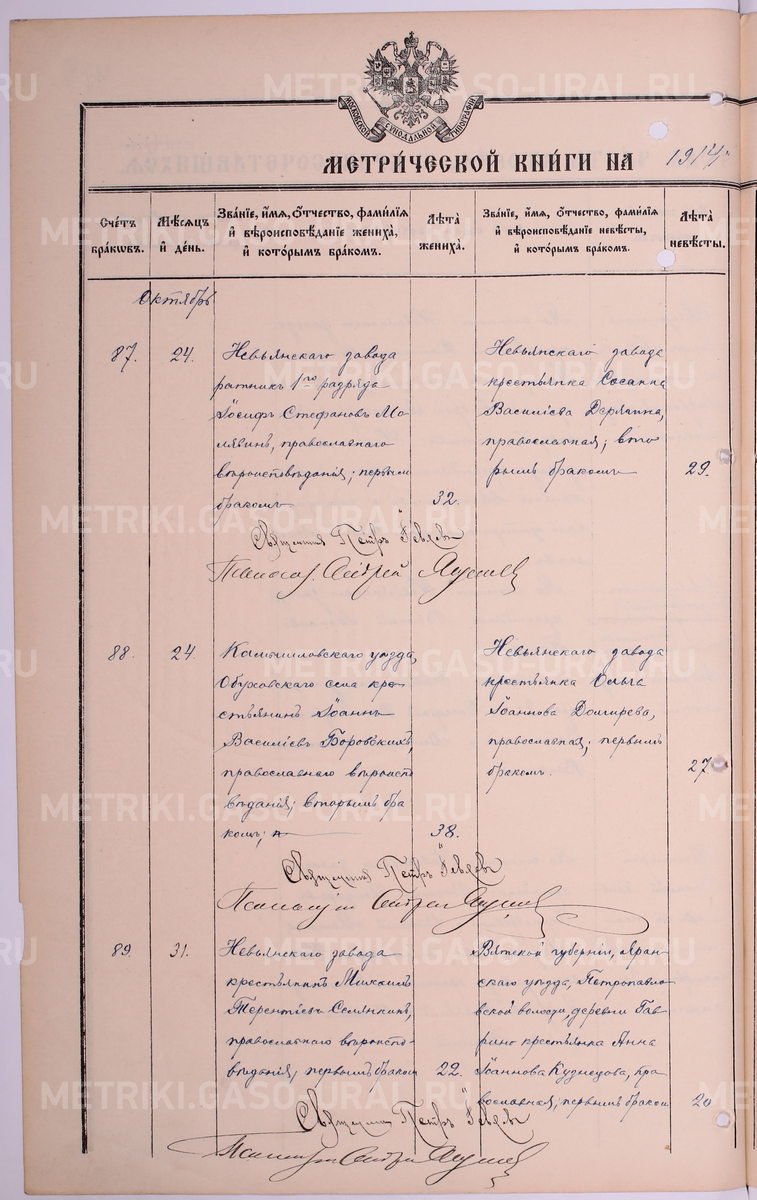 METRIKI.GASO-URAL.RU
МОСКОВСКОЙ СѴНОДАЛЬНОЙ ТИПОГРАФІИ
МЕТРИ́ЧЕСКОЙ КНИ́ГИ НА 1914
Сче́тъ бра́ковъ.
Мѣ́сяцъ и҆ де́нь.
Зва́нїе, и҆́мя, ѻ҆́тчество, фамилїя и҆ вѣроисповѣ́данїе жениха̀, и҆ кото́рымъ бра́комъ.
Лѣ́та жениха̀.
Зва́нїе, и҆́мя, ѻ҆́тчество, фамилїя и҆ вѣроисповѣ́данїе невѣ́сты, и҆ кото́рымъ бра́комъ.
Лѣ́та невѣ́сты.
Октябрь
87. 24.
Невьянскаго завода
ратник 1го разряда
Іосифъ Стефановъ Мо-
лявинъ, православнаго
вѣроисповѣданія; первымъ
бракомъ
32.
Невьянскаго завода
крестьянка Сосанна
Василіева
православная; вто
рымъ бракомъ
29.
Священникъ Петръ
Псалом. Андрей
88. 24.
Камышловскаго уѣзда,
Обуховскаго села кре-
стьянинъ Іоаннъ
Василіевъ Боровскихъ,
православнаго вѣроисп
вѣданія; вторымъ бра
комъ;
38.
Невьянскаго завода
крестьянка Ольга
Іоаннова Долгирева,
православная; первымъ
бракомъ.
27
Священникъ Петръ
Псаломщик Андрей
89. 31.
Невьянскаго завода
крестьянинъ Михаилъ
Терентіевъ Селянкинъ,
православнаго вѣроиспо-
вѣданія, первымъ браком
22.
Вятской губерніи, Яран-
скаго уѣзда, Петропавло
вской волости, деревни Гав
рино крестьянка Анна
Іоаннова Кузнецова, пра
вославная, первымъ браком
20
Священник Петръ
Псаломщ Андрей